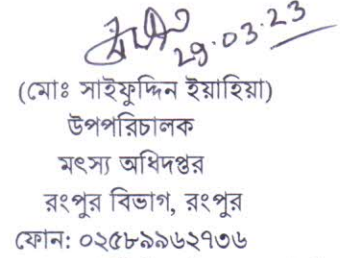 ২৯.০৩.২৩
(মোঃ সাইফুদ্দিন ইয়াহিয়া)
উপপরিচালক
মৎস্য অধিদপ্তর
রংপুর বিভাগ, রংপুর
ফোন: ০২৫৮৯৯৬২৭৩৬